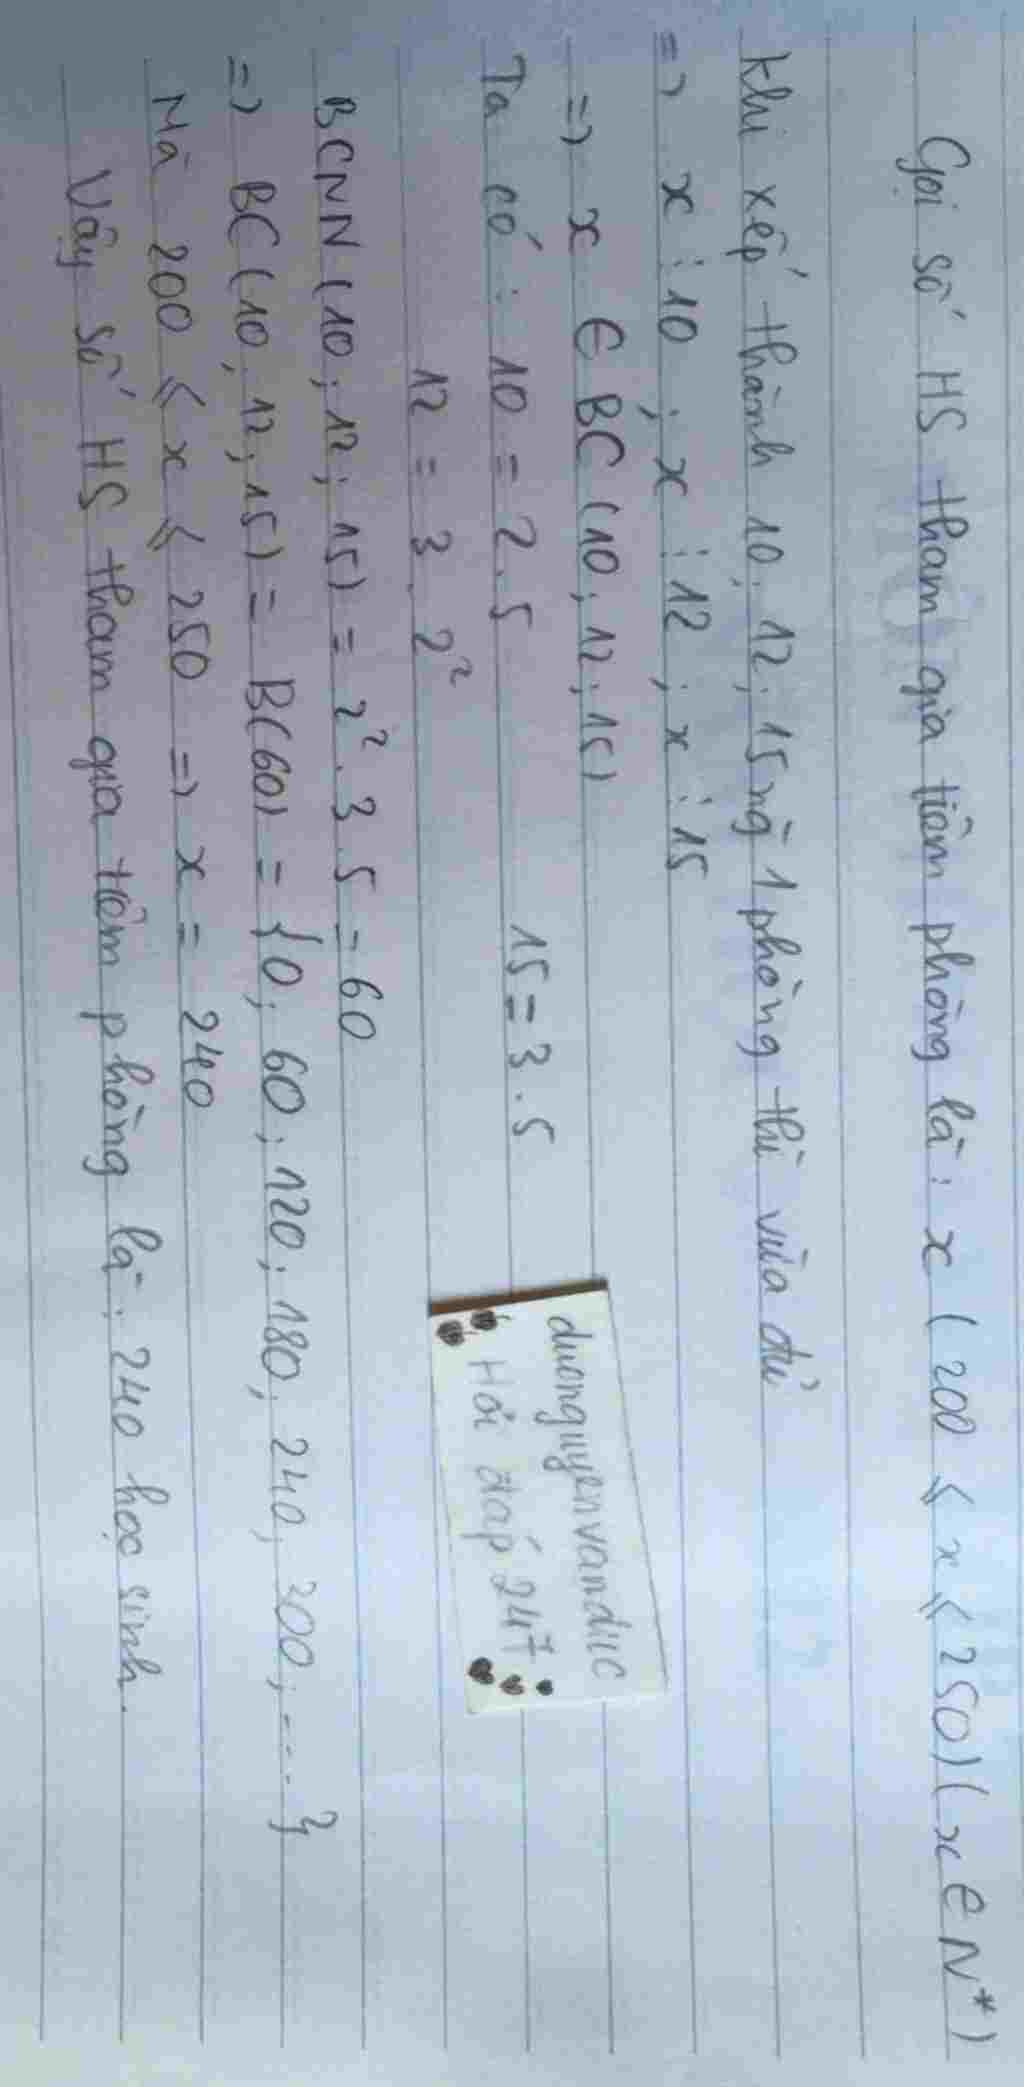 Gọi số HS tham gia tiêm phòng là : x ( 200 ⩽ x ⩽ 250) ( x ∈ N*)
Khi xếp thành 10; 12; 15 ng 1 phòng thì vừa đủ
=> x ⋮ 10 ; x ⋮ 12 ; x ⋮ 15
=> x ∈ BC (10; 12; 15)
Ta có : 10 = 2.5 15 = 3.5
12 = 3.2²
BCNN (10; 12; 15) = 2².3.5 = 60
=> BC (10; 12; 15) = B(60) = {0; 60; 120; 180; 240; 300; ---- }
Mà 200 ⩽ x ⩽ 250 => x = 240
Vậy số HS tham gia tiêm phòng là : 240 học sinh.
duonguyenvanduc
Hỏi đáp 247